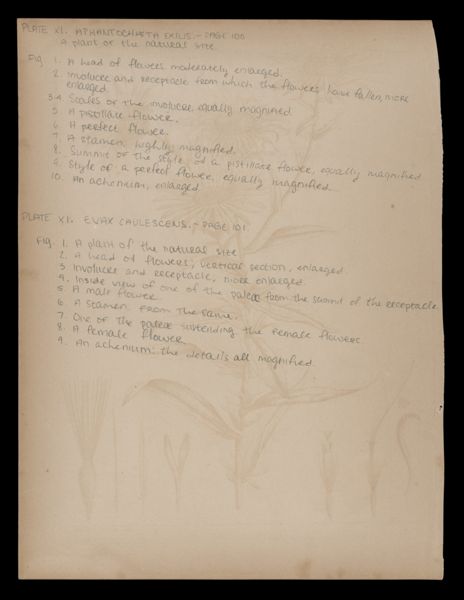 PLATE XI. APHANTOCHAETA EXILIS. - PAGE 100
A plant of the natural size.
Fig 1. A head of flowers moderately enlarged.
2. Involucre and receptacle from which the flowers have fallen, more
enlarged.
3-4 Scales of the involucre equally magnified.
5 A pistillate flower.
6 A perfect flower.
7 A stamen, highly magnified.
8. Summit of the style of a pistillate flower, equally magnified
9. Style of a perfect flower, equally magnified.
10. An achenium, enlarged
PLATE XI. EVAX CAULESCENS. - PAGE 101
Fig. 1. A plant of the natural size
2. A head of flowers; vertical section, enlarged.
3 Involucre and receptacle, more enlarged.
4. Inside view of one of the paleæ from the summit of the receptacle
5. A male flower.
6 A stamen from the same.
7. One of the paleæ subtending the female flowers
8. A female flower
9. An achenium: the details all magnified.